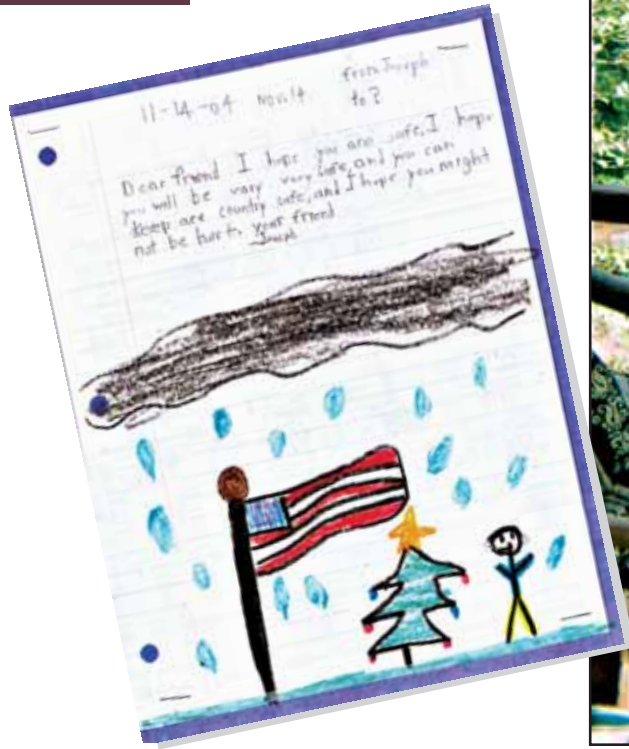 from Joseph
11-14-04 Nov. 14 to ?
Dear friend I hope you are safe, I hope
you will be vary vary safe, and you can
keep are country safe, and I hope you might
not be hurt. your friend
Joseph